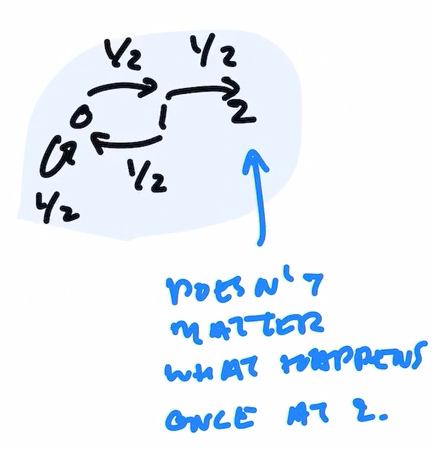 1/2 1/2
0 1 2
1/2
1/2
DOESN'T
MATTER
WHAT HAPPENS
ONCE AT 2.